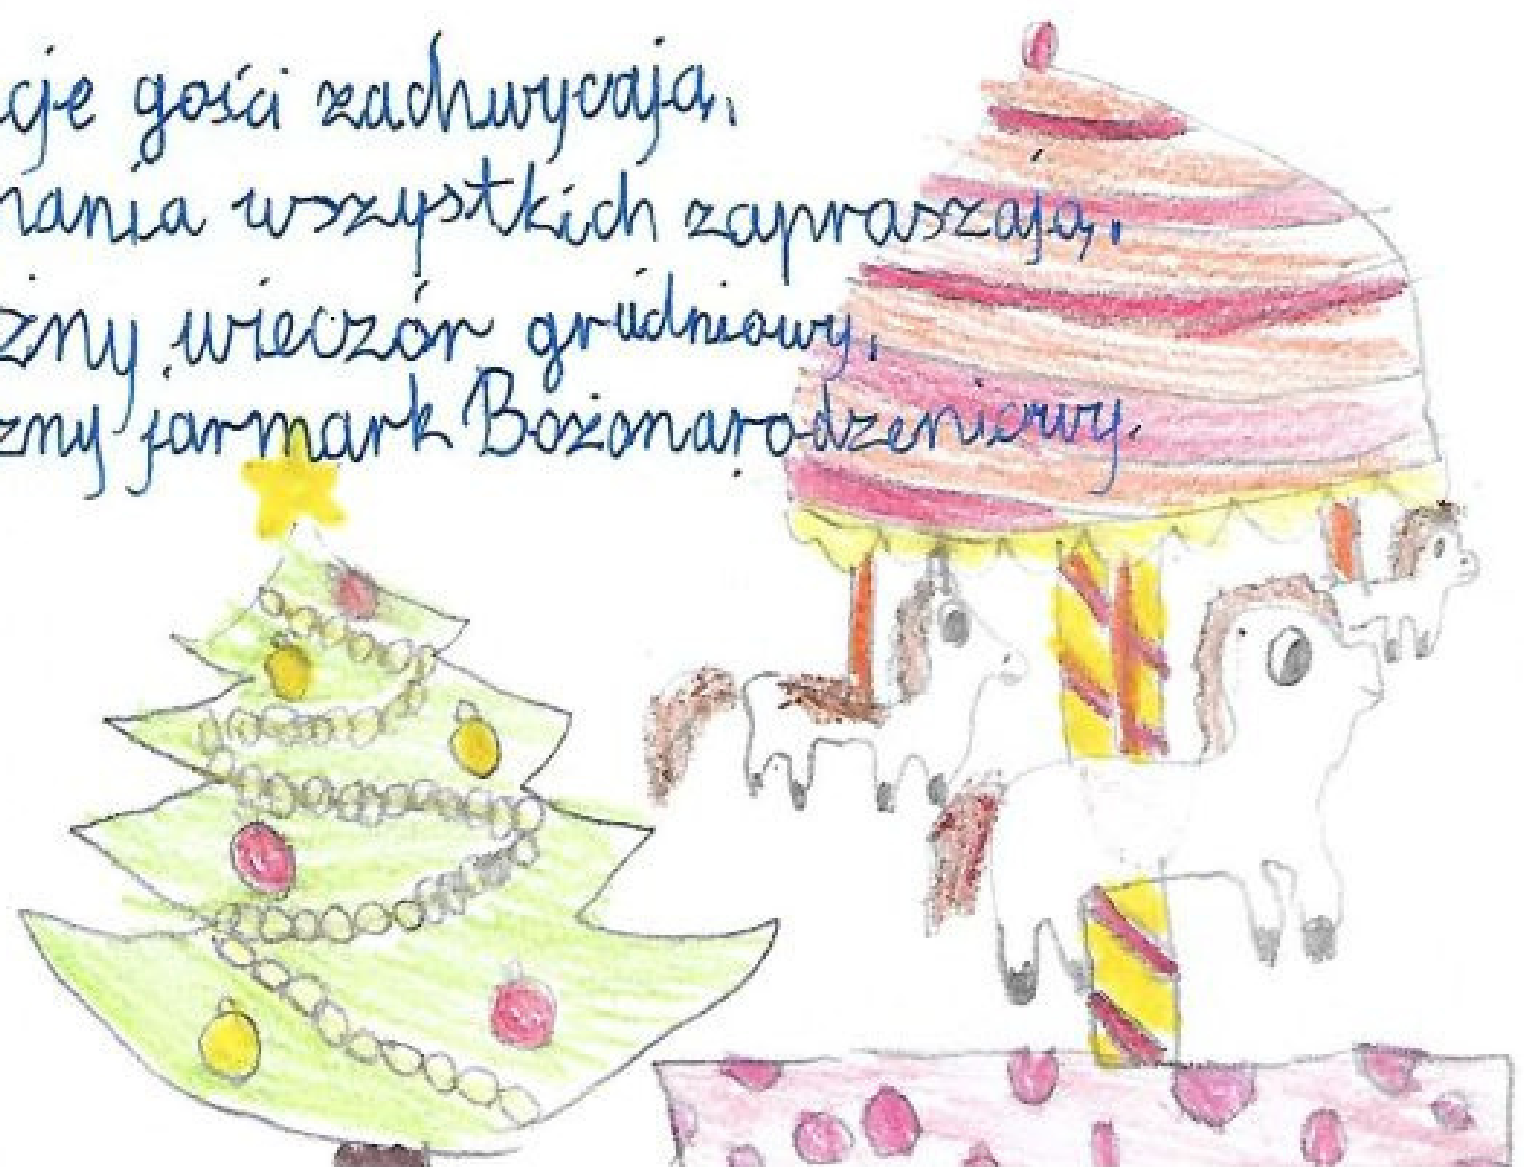 cje gości zachwycają,
nania wszystkich zapraszają,
żny wieczór grudniowy,
zny jarmark Bożonarodzeniowy.